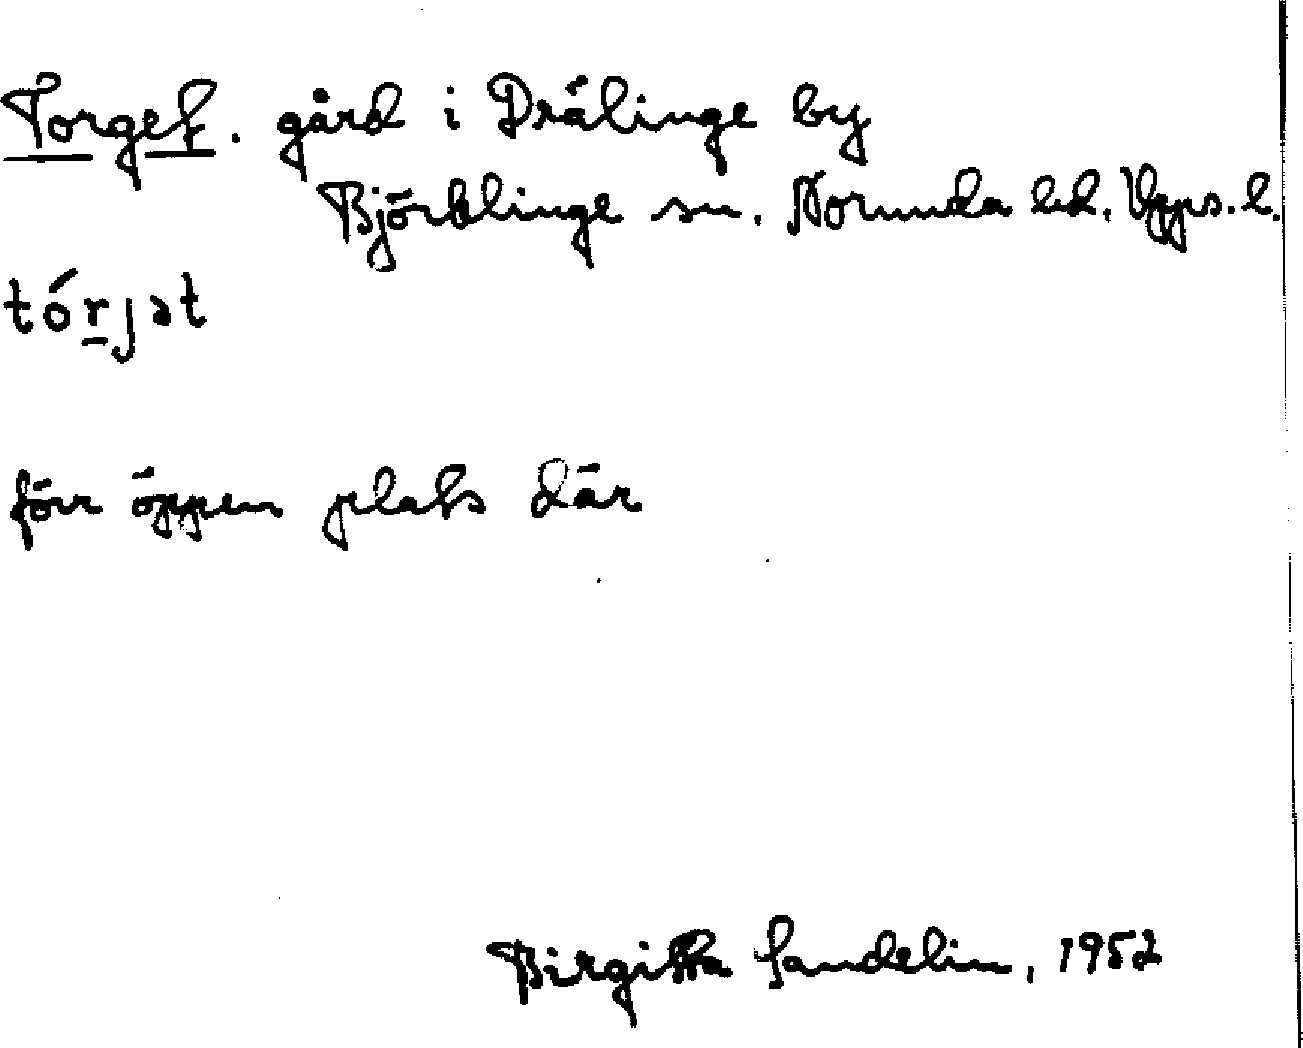 Torget. gård i Drälinge by
Björklinge sn. Norunda hd. Upps. l.
tórjət
förr öppen plats där
Birgitta Sandelin, 1952